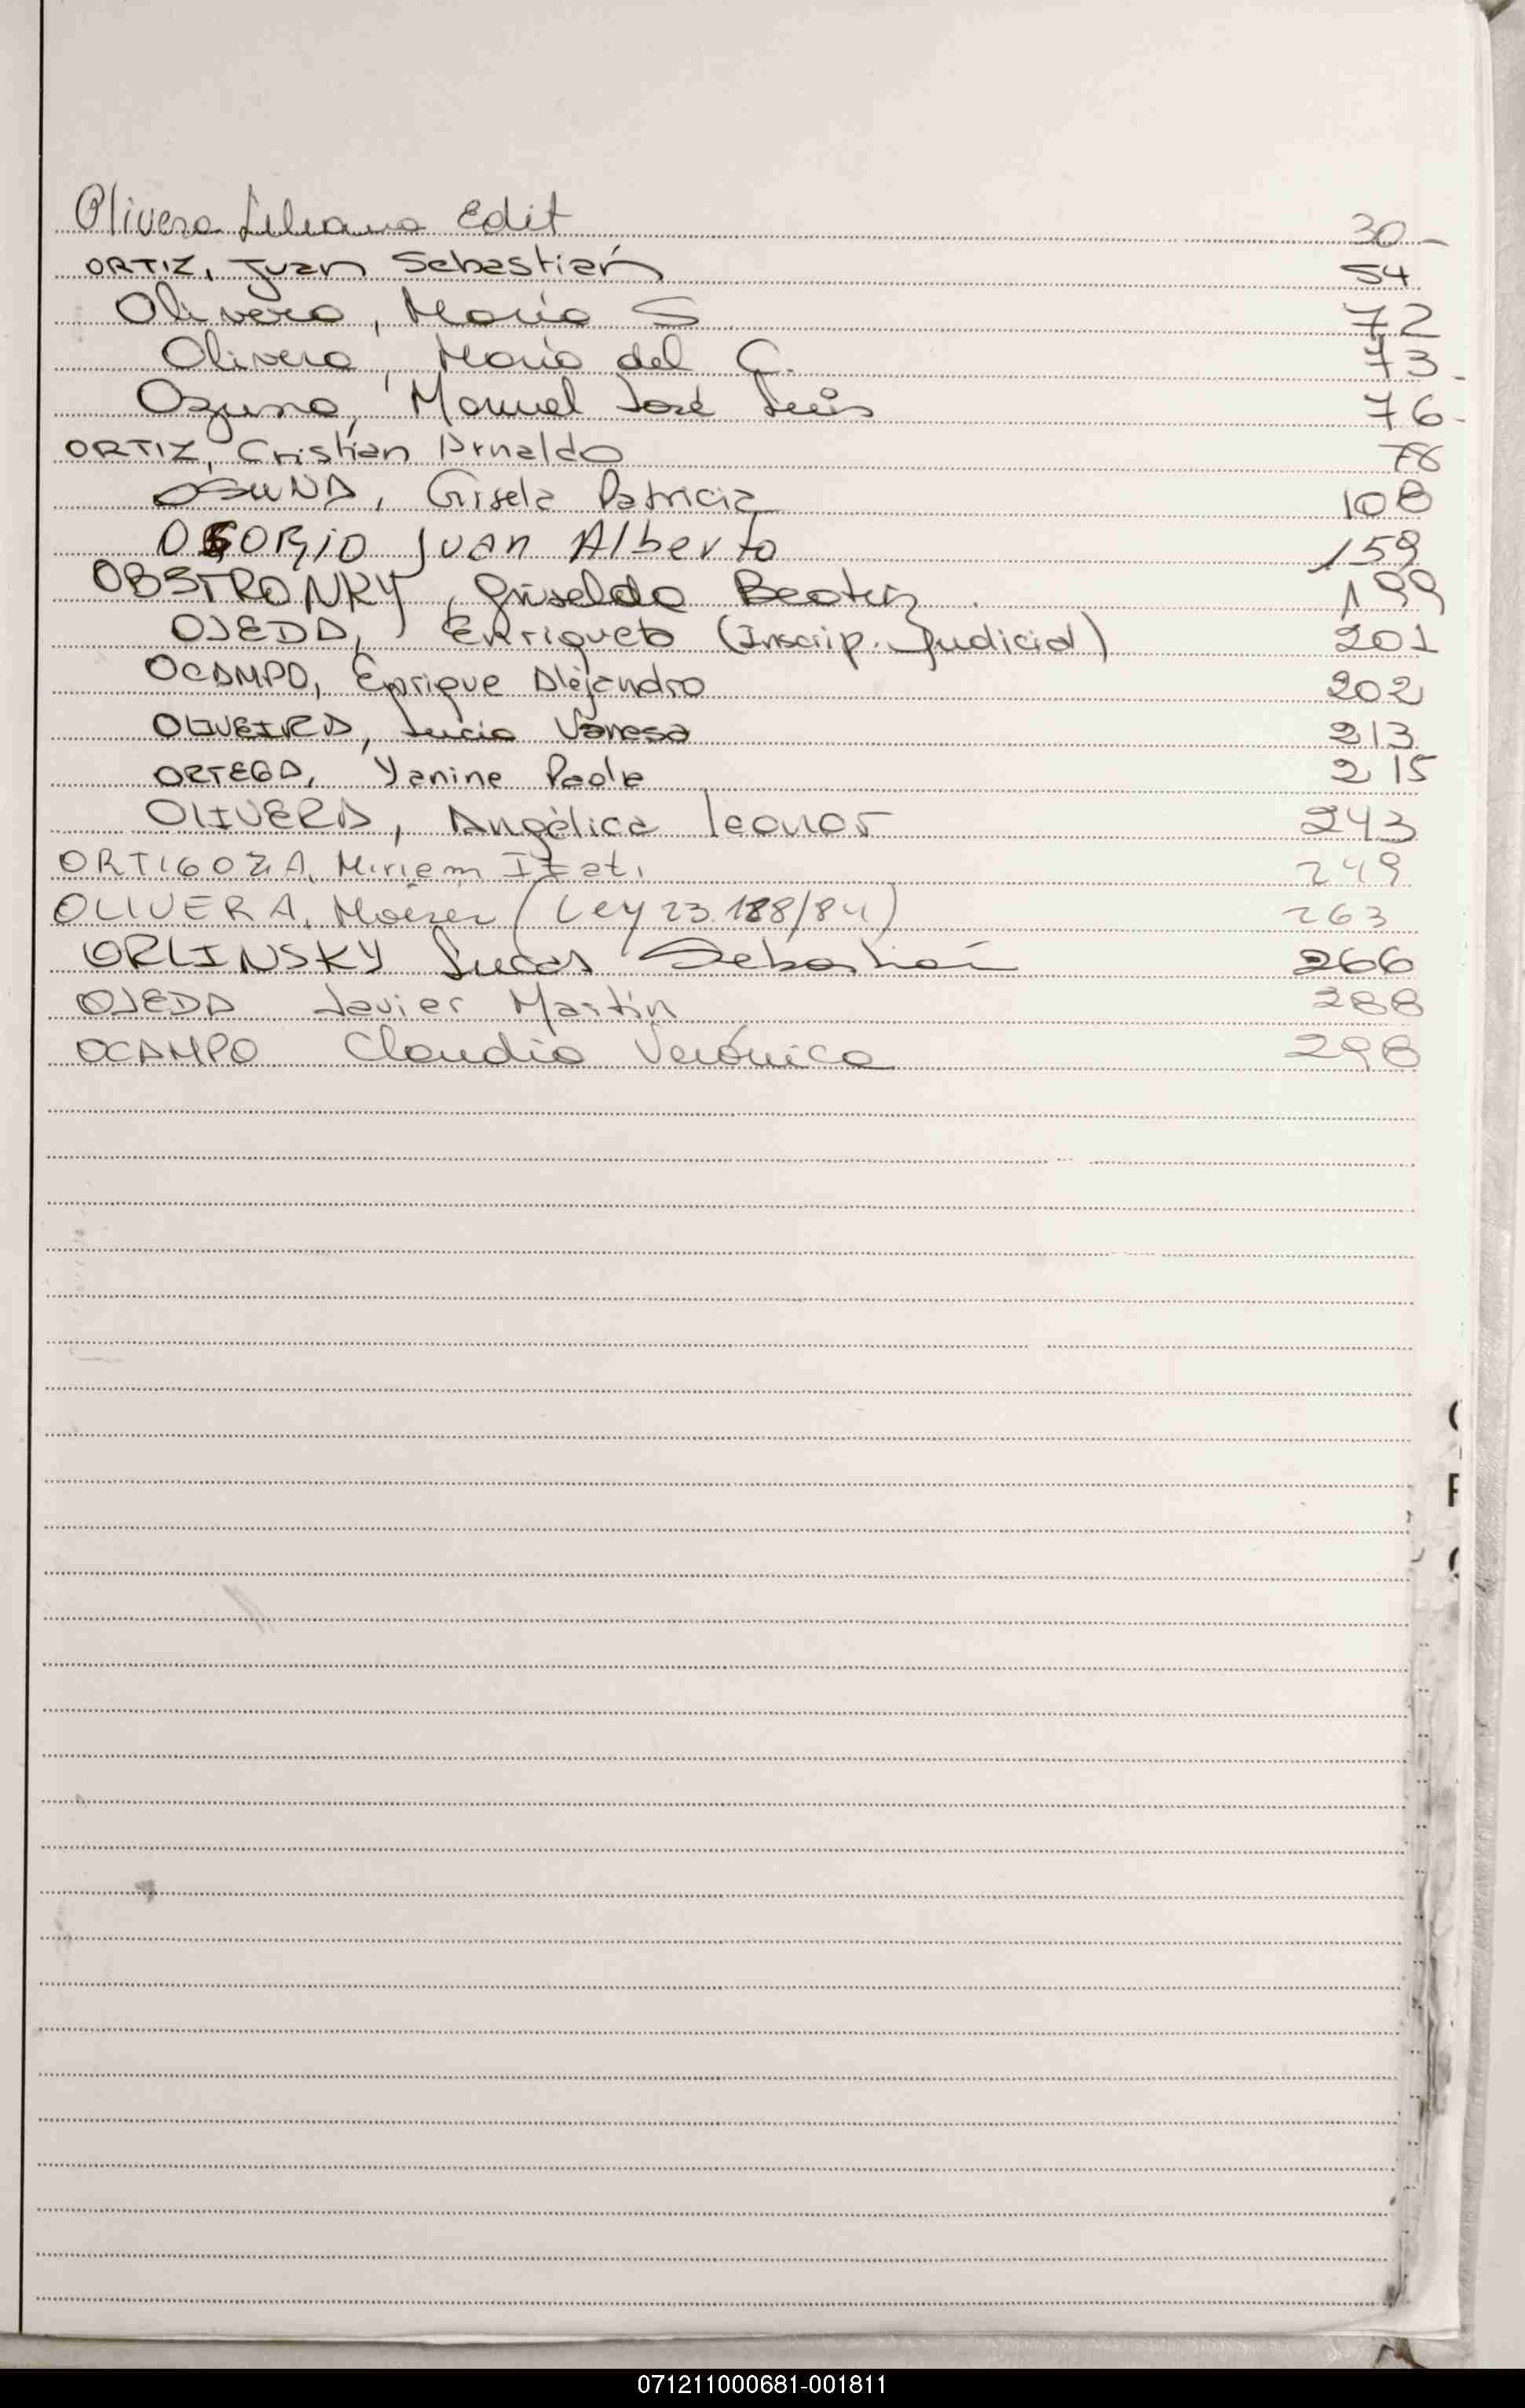 Olivera Liliana Edit 30-
ORTIZ, Juan Sebastián 54
Olivera, María S 72
Olivera, María del C. 73-
Ozuna, Manuel José Luis 76-
ORTIZ, Cristian Arnaldo 78
OSUNA, Gisela Patricia 108
OSORIO Juan Alberto 159
OBSTRONKY, Griselda Beatriz 199
OJEDA, Enriqueta (Inscrip. Judicial) 201
OCAMPO, Enrique Alejandro 202
OLIVEIRA, Lucia Vanesa 213
ORTEGA, Yanine Paola 215
OLIVERA, Angélica Leonor 243
ORTIGOZA, Miriam Itatí 249
OLIVERA, (Ley 23.188/84) 263
ORLINSKY Lucas Sebastián 266
OJEDA Javier Martín 288
OCAMPO Claudia Verónica 298
071211000681-001811